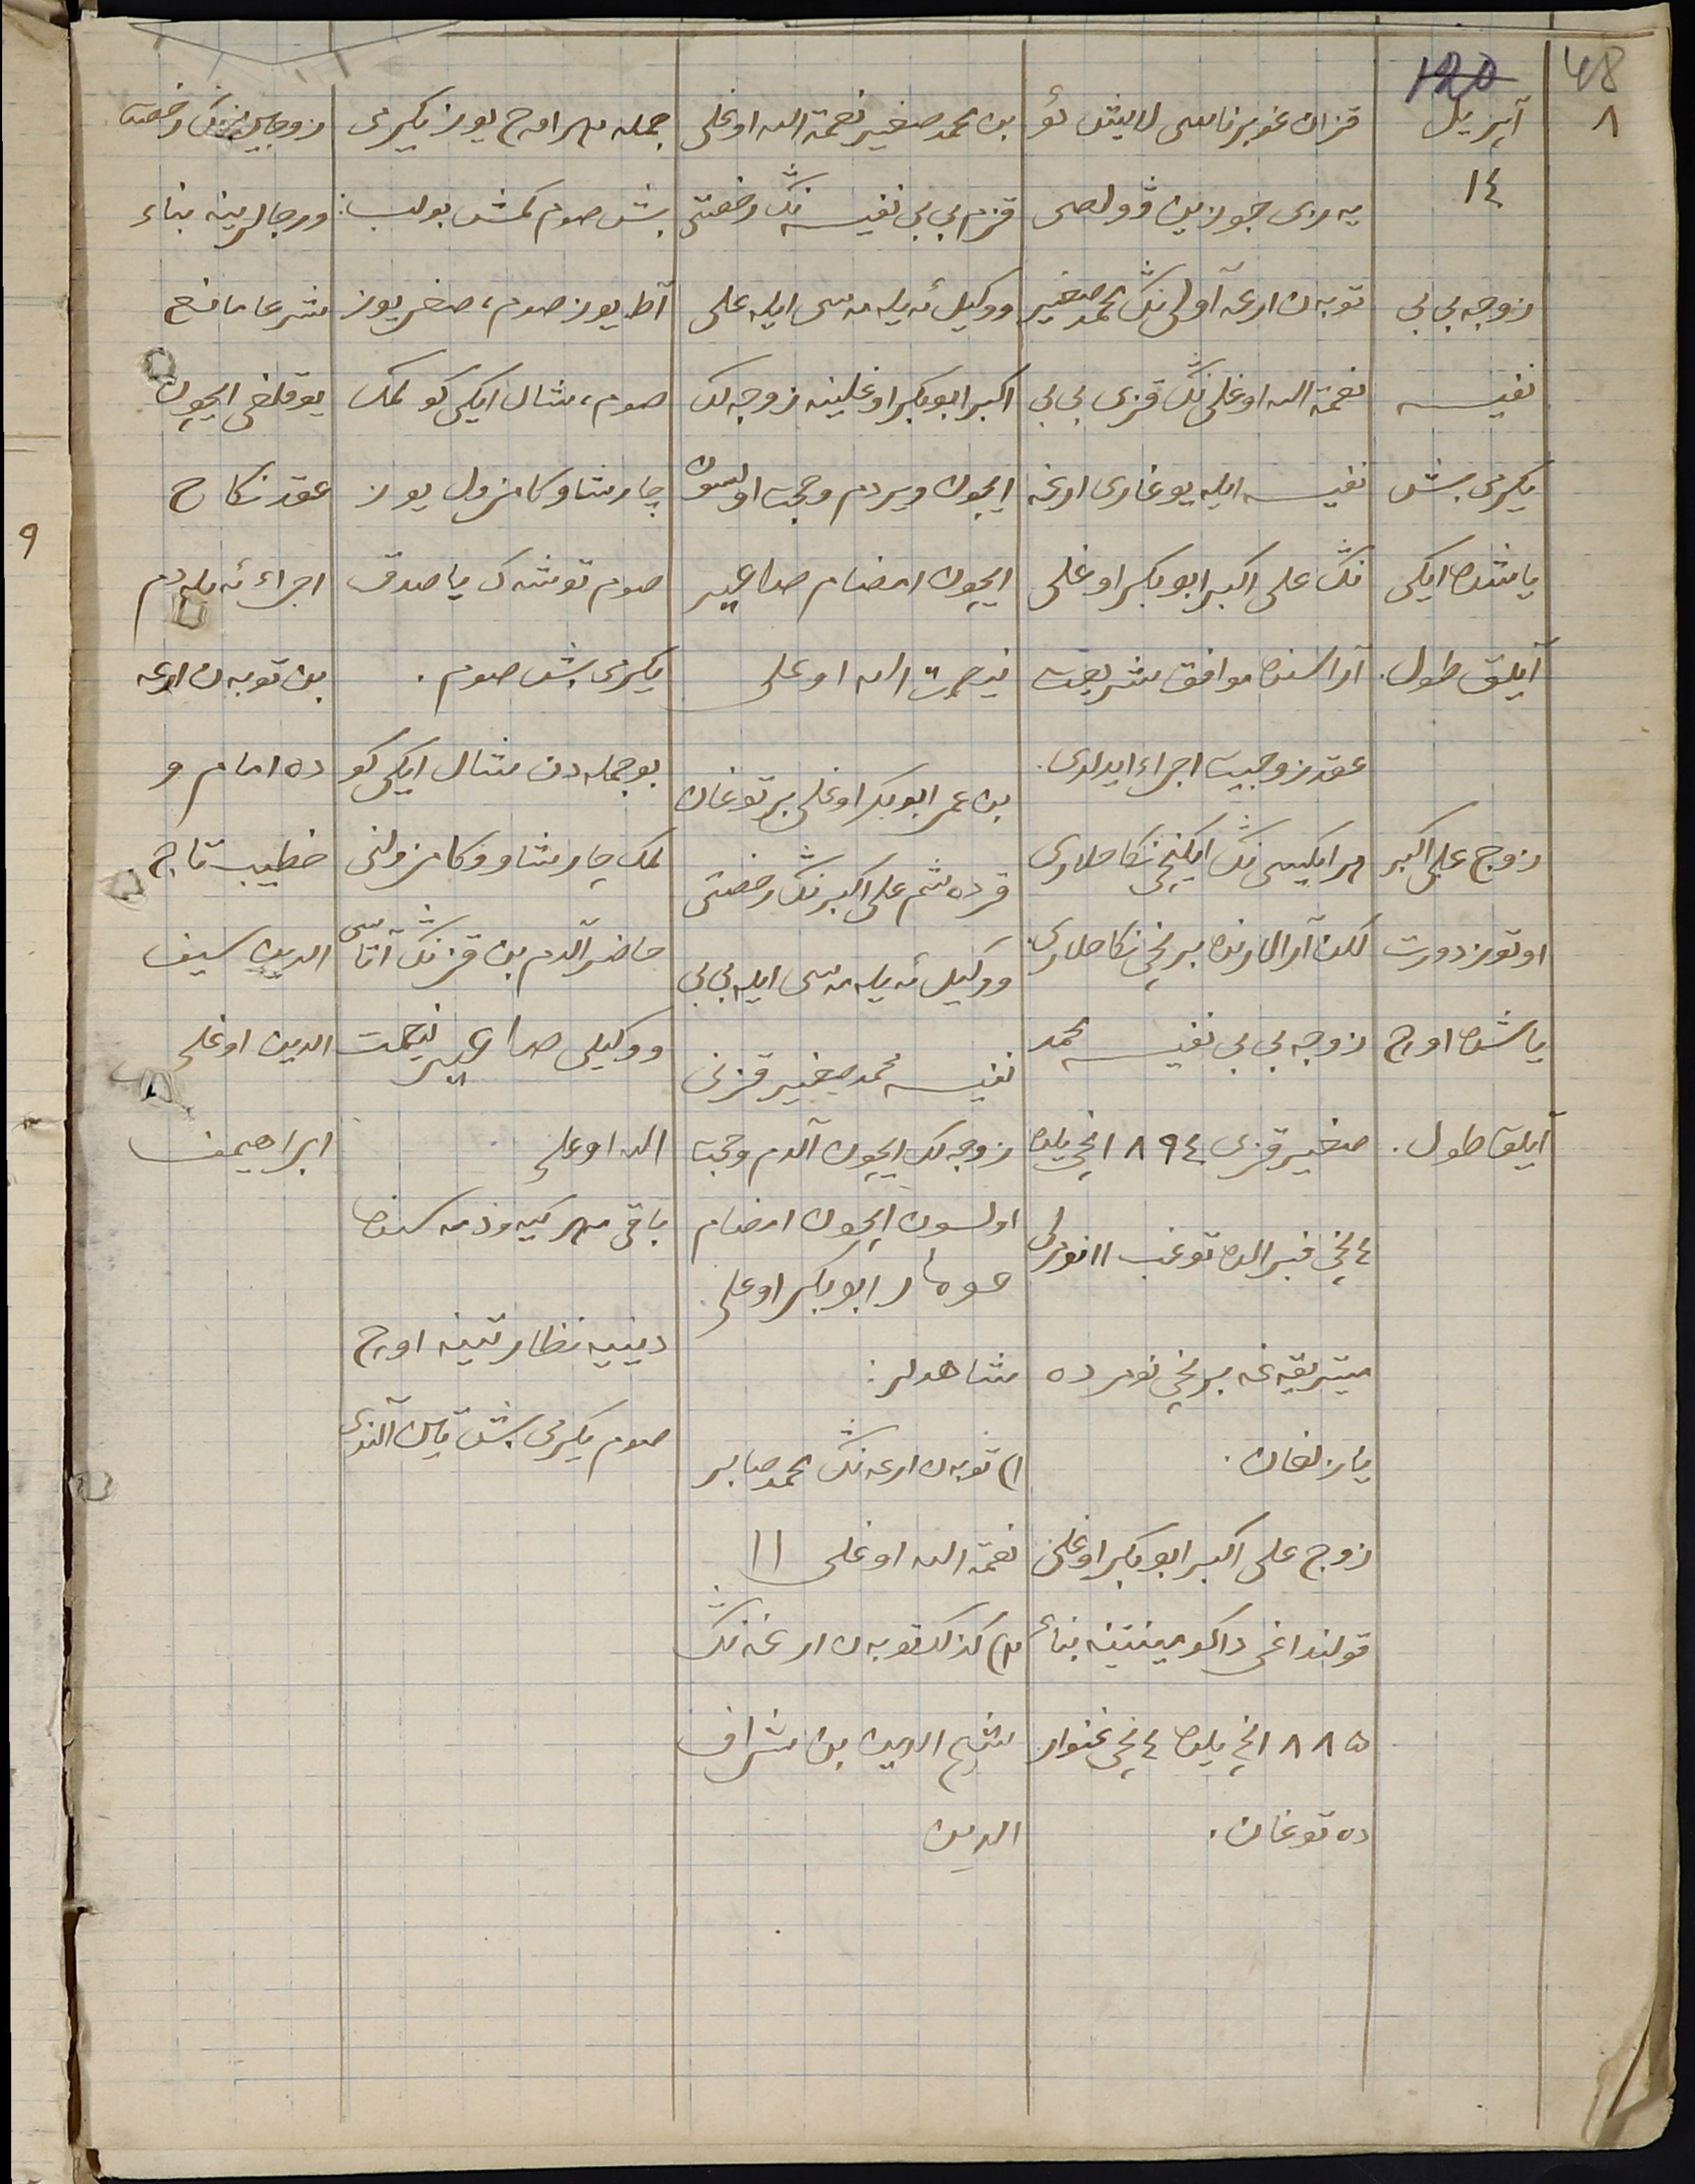 48
120
٨
آپریل
١٤
زوجه بی بی
نفیسه
یکرمی بش
یاشده ایکی
آیلق طول.
زوج علی اکبر
اوتوز دورت
یاشده اوچ
آیلق طول.
قزان غوبرناسی لاییش ئو
یه زی جوزین وولصی
توبه ن ارغه آولی نڭ محمد صغیر
نعمة الله اوغلی نڭ قزی بی بی
نفیسه ایله یوغاری ارغه
نڭ علی اکبر ابوبکر اوغلی
آراسنده موافق شریعت
عقد زوجیت اجراء ایدلدی.
هر ایکیسی نڭ ایکنچی نکاحلاری
لکن آرالارنده برنچی نکاحلاری.
زوجه بی بی نفیسه محمد
صغیر قزی ١٨٩٤ نچی یلده
٤ نچی فبرالده توغب ١١ نومرلی
میتریقه غه برنچی نومرده
یازلغان.
زوج علی اکبر ابوبکر اوغلی
قولنداغی داکومینتینه بناءً
١٨٨٥ نچی یلده ٤ نچی غنوار
ده توغان.
بن محمد صغیر نعمة الله اوغلی
قزم بی بی نفیسه نڭ رخصتی
ووکیل ئه یله مه سی ایله علی
اکبر ابوبکر اوغلینه زوجه لک
ایچون ویردم وحجت اولسون
ایچون امضام صاغیر
نیعمت الله اوغلی
بن عمر ابوبکر اوغلی بر توغان
قرده شم علی اکبر نڭ رخصتی
ووکیل ئه یله مه سی ایله بی بی
نفیسه محمد صغیر قزنی
زوجه لک ایچون آلدم وحجت
اولسون ایچون امضام
ابوبکر اوغلی
شاهدلر:
١) توبه ن ارغه نڭ محمد صابر
نعمة الله اوغلی ١١
٢) کذلک توبه ن ارغه نڭ
شیخ الدین بن شراف
الدین
جمله مهر اوچ یوز یکرمی
بش صوم کمش بولب:
آط یوز صوم، صغر یوز
صوم، شال ایکی کولمک
چارشاو کامزول یوز
صوم توشه ک یاصدق
یکرمی بش صوم.
بو جمله دن شال ایکی کو
لمک چارشاو و کامزولنی
حاضر آلدم بن قز نڭ آتاسی
ووکیلی صاغیر نیعمت
الله اوغلی
باقی مهر کیه و ذمه سنده
دینیه نظارتینه اوچ
صوم یکرمی بش تین آلندی
زوجاین نڭ رخصت
ورجالرینه بناء
شرعا مانع
یوقلغی ایچون
عقد نکاح
اجراء ئه یله دم
بن توبه ن ارغه
ده امام و
خطیب تاج
الدین سیف
الدین اوغلی
ابراهیمف
٩